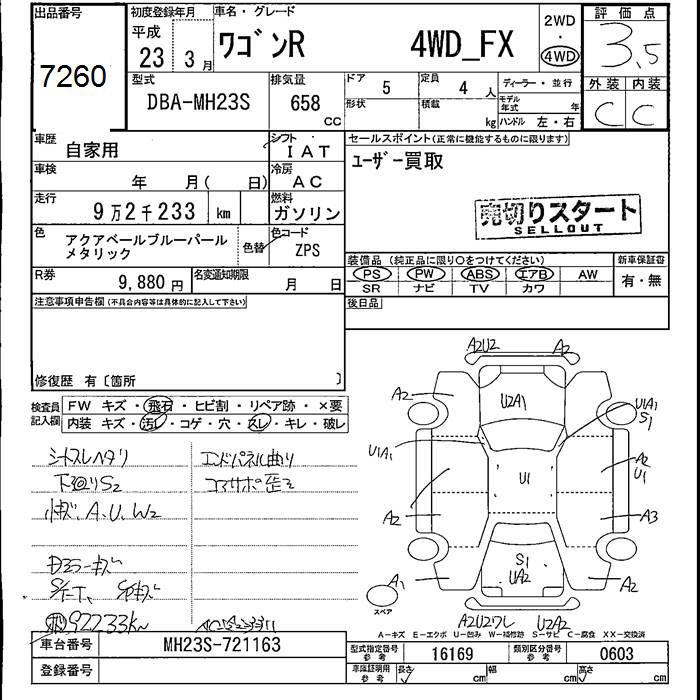 出品番号
7260
初度登録年月
平成
23 3月
車名・グレード
ワゴンR 4WD_FX
2WD
4WD
評価点
3.5
外装 内装
C C
型式
DBA-MH23S
排気量
658
cc
ドア 5
形状
定員 4 人
積載 kg
ディーラー・並行
モデル年式 年
ハンドル 左・右
車歴 自家用
シフト IAT
車検 年 月( 日)
冷房 AC
走行 9万2千233 km
燃料 ガソリン
色 アクアベールブルーパール
メタリック
色替
色コード ZPS
R券 9,880 円
名変通知期限 月 日
セールスポイント(正常に機能するものに限ります)
ユーザー買取
売切りスタート
SELLOUT
装備品(純正品に限り○をつけてください)
PS PW ABS エアB AW
SR ナビ TV カワ
新車保証書
有・無
後日品
注意事項申告欄(不具合内容等は具体的に記入して下さい)
修復歴 有〔箇所 〕
検査員記入欄
FW キズ・飛石・ヒビ割・リペア跡・×要
内装 キズ・汚れ・コゲ・穴・スレ・キレ・破レ
シートスレヘタリ
下廻りS2
小キズ、A、U、W2
エンドパネル曲り
コアサポ歪ミ
92233km
A2U2 A2
A2 U2A1 U1A1
S1
U1A1 U1 A2
U1
A2 A3
S1
UA2
A1 A2
スペア
A2U2ワレ U2A2
A-キズ E-エクボ U-凹み W-補修跡 S-サビ C-腐食 XX-交換済
車台番号 MH23S-721163
登録番号
型式指定番号 参考 16169
類別区分番号 参考 0603
車庫証明用 参考 長さ cm 幅 cm 高さ cm